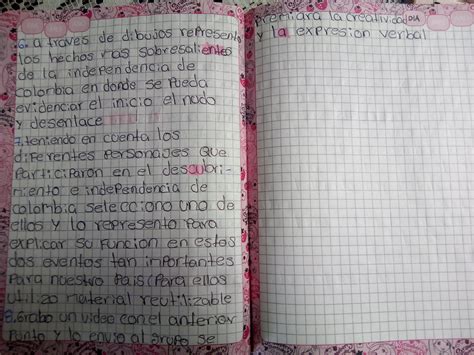 6. a traves de dibujos represento
los hechos mas sobresalientes
de la independencia de
colombia en donde se pueda
evidenciar el inicio el nudo
y desenlace
7. teniendo en cuenta los
diferentes personajes que
participaron en el descubri-
miento e independencia de
colombia selecciono uno de
ellos y lo represento para
explicar su funcion en estos
dos eventos tan importantes
para nuestro pais (para ellos
utilizo material reutilizable
8. Grabo un video con el anterior
punto y lo envio al grupo se
premiara la creatividad
DIA
y la expresion verbal